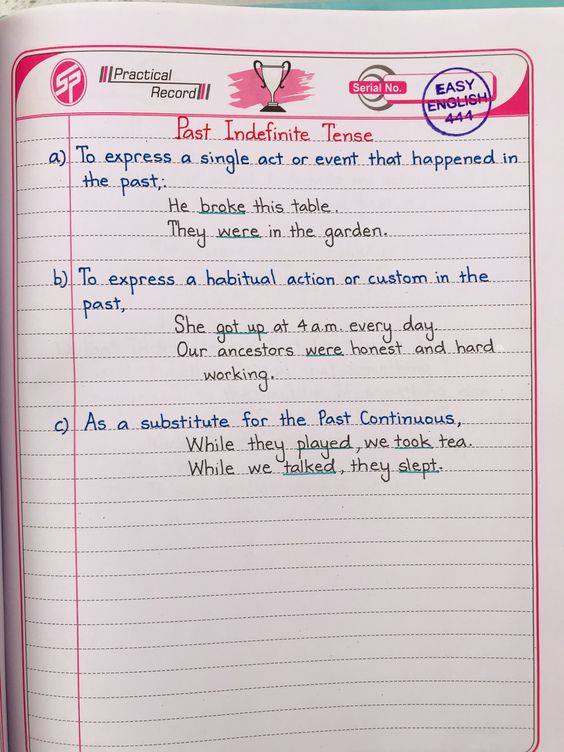 SP
Practical
Record
Serial No.
EASY
ENGLISH
444
Past Indefinite Tense
a) To express a single act or event that happened in
the past,:
He broke this table.
They were in the garden.
b) To express a habitual action or custom in the
past,
She got up at 4 a.m. every day.
Our ancestors were honest and hard
working.
c) As a substitute for the Past Continuous,
While they played, we took tea.
While we talked, they slept.